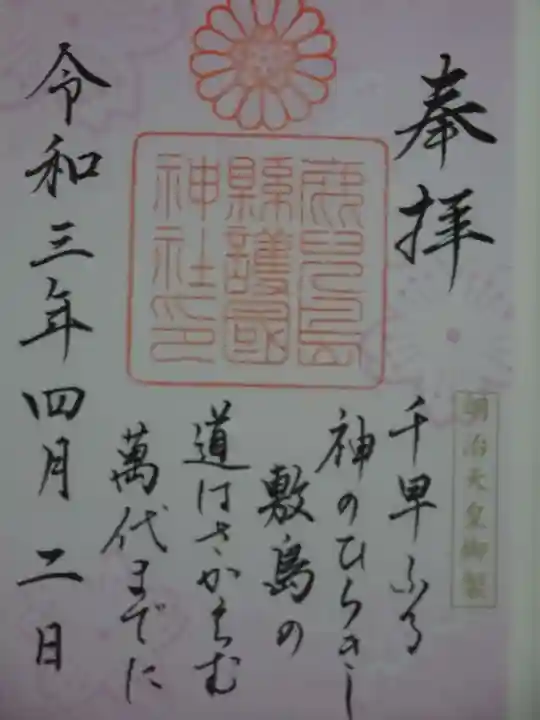 奉拝
明治天皇御製
千早ふる
神のひらきし
敷島の
道はさかえむ
萬代までに
鹿児島
縣護國
神社印
令和三年四月二日